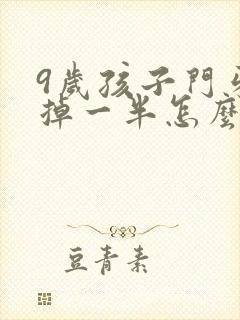 9歲孩子門牙
掉一半怎麼
豆青素